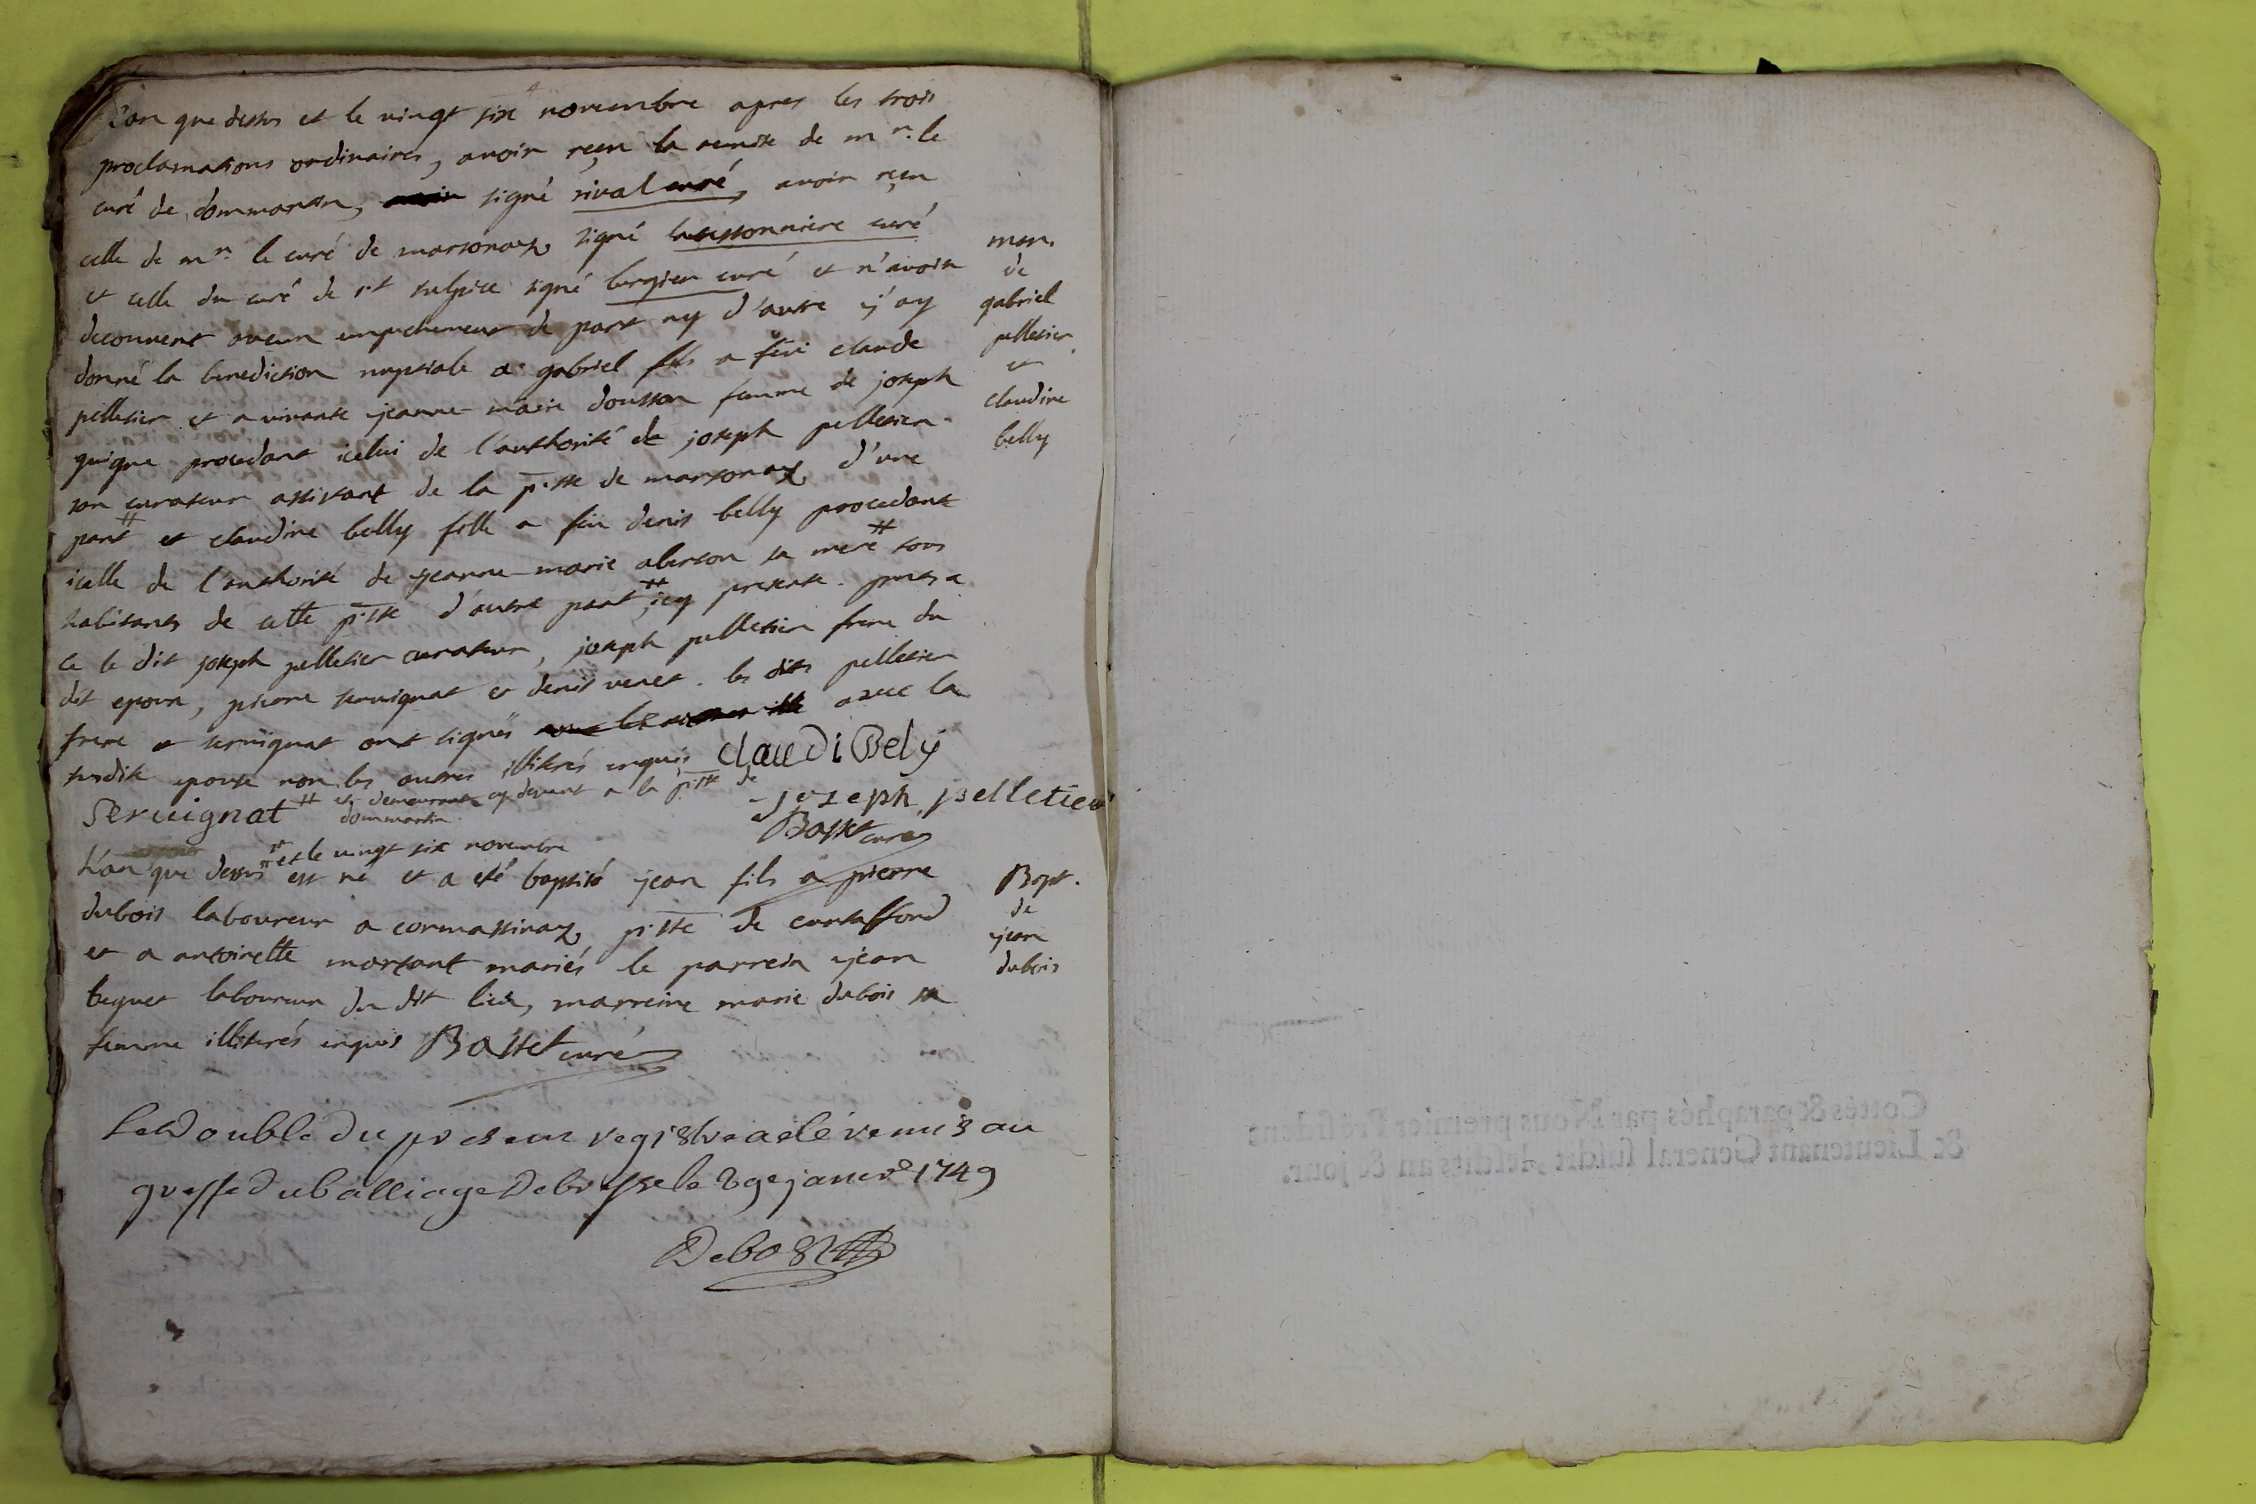 L'an que dessus et le vingt six novembre apres les trois
proclamations ordinaires, avoir reçeu la remise de mr. le
curé de dommartin, signé rival curé, avoir reçeu
celle de mr. le curé de marsonax signé curé
et celle du curé de st sulpice signé curé et n'avoir
decouvert aucun empechement de part ny d'autre j'ay
donné la benediction nuptiale a gabriel fils a feu claude
pelletier et a vivante jeanne marie femme de joseph
guigue procedant icelui de l'authorité de joseph pelletier
son curateur assistant de la p.sse de marsonax d'une
part et claudine belly fille a feu denis belly procedante
icelle de l'authorité de jeanne marie sa mere # tous
habitants de cette p.sse d'autre part # icy presente. presens a
ce le dit joseph pelletier curateur, joseph pelletier frere du
dit epoux, pierre servignat et denis venet. les dits pelletier
frere et servignat ont signés avec la
susdite epouse non les autres illiterés enquis claudi Bely
servignat # et demeurante cy devant a la p.sse de
dommartin
joseph pelletier
Basset curé
mar.
de
gabriel
pelletier
et
claudine
belly
L'an que dessus # est né et a eté baptisé jean fils a pierre
# et le vingt six novembre
dubois laboureur a cormassinax p.sse de curtaffond
et a antoinette mariés le parrein jean
laboureur du dit lieu, marreine marie dubois sa
femme illiterés enquis Basset curé
Bapt.
de
jean
dubois
Le Double du present registre a eté remis au
greffe du balliage De bresse le 29e janvr 1749
Debost
Cottés & paraphés par Nous premier Président
& Lieutenant General susdit, desdits an & jour.